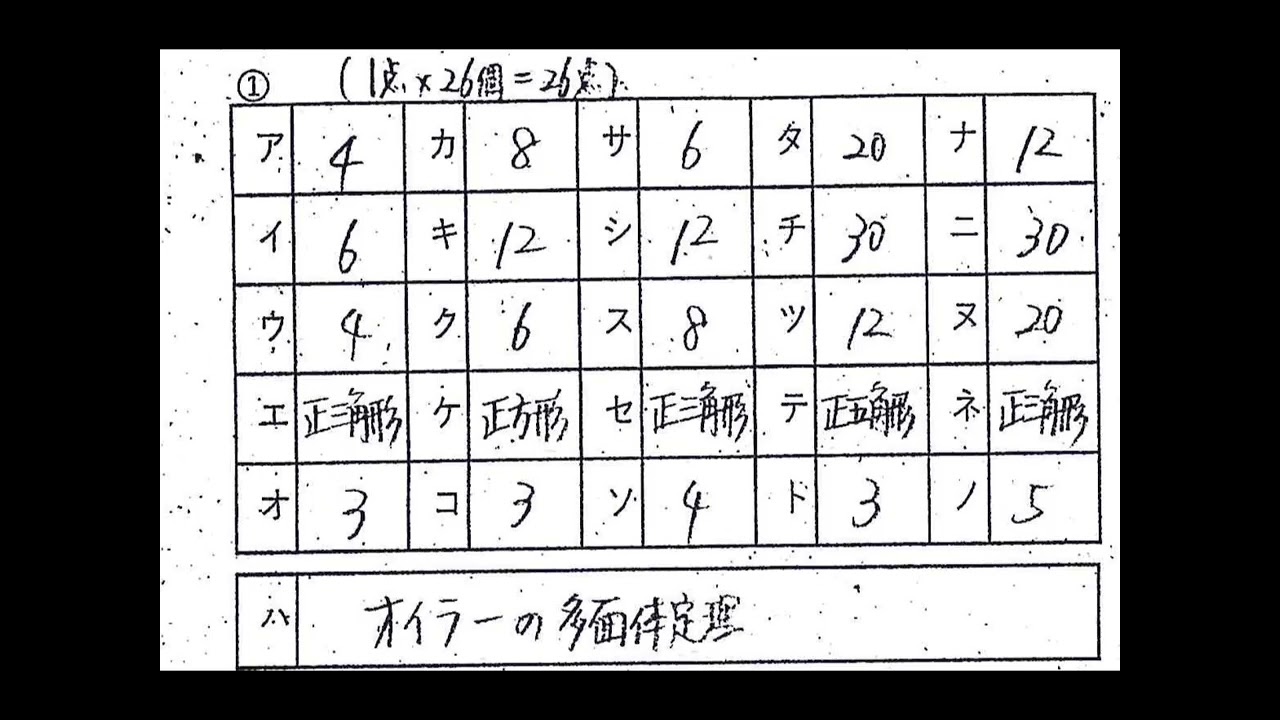 ① (1点×26個=26点)
ア 4 カ 8 サ 6 タ 20 ナ 12
イ 6 キ 12 シ 12 チ 30 ニ 30
ウ 4 ク 6 ス 8 ツ 12 ヌ 20
エ 正三角形 ケ 正方形 セ 正三角形 テ 正五角形 ネ 正三角形
オ 3 コ 3 ソ 4 ト 3 ノ 5
ハ オイラーの多面体定理